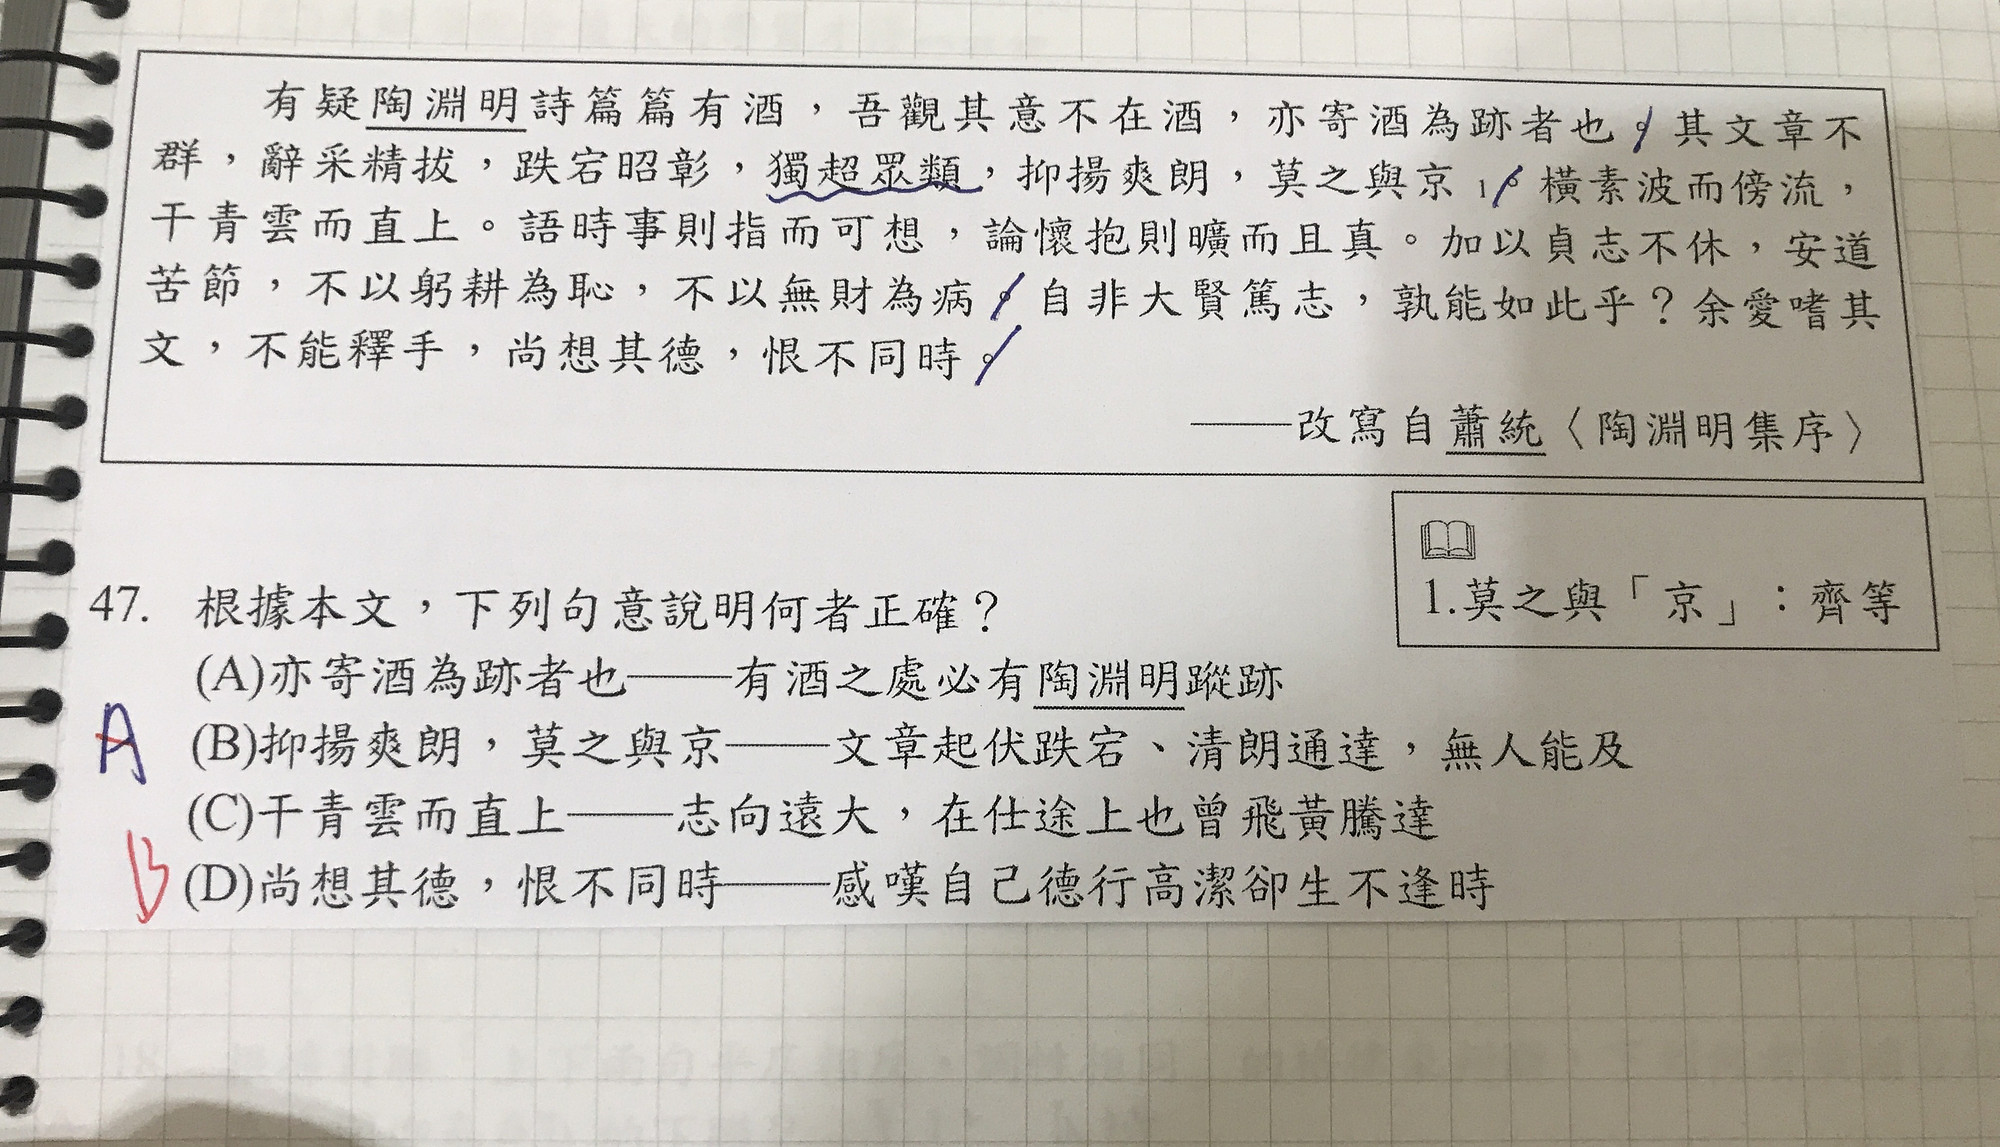 有疑陶淵明詩篇篇有酒，吾觀其意不在酒，亦寄酒為跡者也。其文章不
群，辭采精拔，跌宕昭彰，獨超眾類，抑揚爽朗，莫之與京1。橫素波而傍流，
干青雲而直上。語時事則指而可想，論懷抱則曠而且真。加以貞志不休，安道
苦節，不以躬耕為恥，不以無財為病。自非大賢篤志，孰能如此乎？余愛嗜其
文，不能釋手，尚想其德，恨不同時。
——改寫自蕭統〈陶淵明集序〉
1.莫之與「京」：齊等
47. 根據本文，下列句意說明何者正確？
(A)亦寄酒為跡者也——有酒之處必有陶淵明蹤跡
A
(B)抑揚爽朗，莫之與京——文章起伏跌宕、清朗通達，無人能及
(C)干青雲而直上——志向遠大，在仕途上也曾飛黃騰達
B
(D)尚想其德，恨不同時——感嘆自己德行高潔卻生不逢時